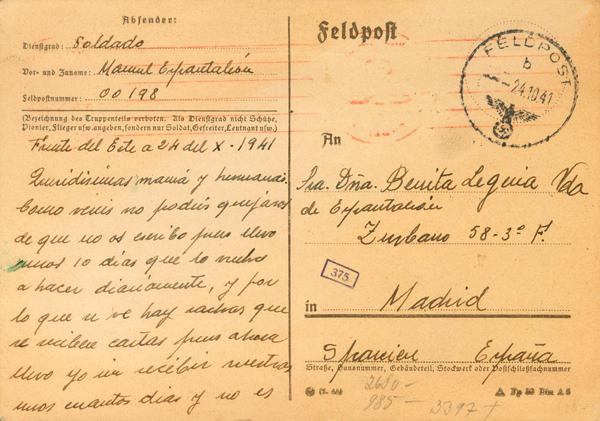 Absender:
Dienstgrad: Soldado
Vor- und Zuname: Manuel Espantaleón
Feldpostnummer: 00198
(Bezeichnung des Truppenteils verboten. Als Dienstgrad nicht Schütze,
Pionier, Flieger usw. angeben, sondern nur Soldat, Gefreiter, Leutnant usw.)
Frente del Este a 24 del X - 1941
Queridisimas mamá y hermanas.
Como veis no podéis quejaros
de que no os escribo pues llevo
unos 10 dias que lo vuelvo
a hacer diariamente, y por
lo que se ve hay rachas que
se reciben cartas pues ahora
llevo yo sin recibir vuestras
unos cuantos dias y no es
Feldpost
FELDPOST
b
24.10.41
An
Sra. Dña. Benita Leguia Vda
de Espantaleón
Zurbano 58-3º F.
375
in Madrid
Spanien España
Straße, Hausnummer, Gebäudeteil, Stockwerk oder Postschließfachnummer
2680-
985-
3397+
Din A 6